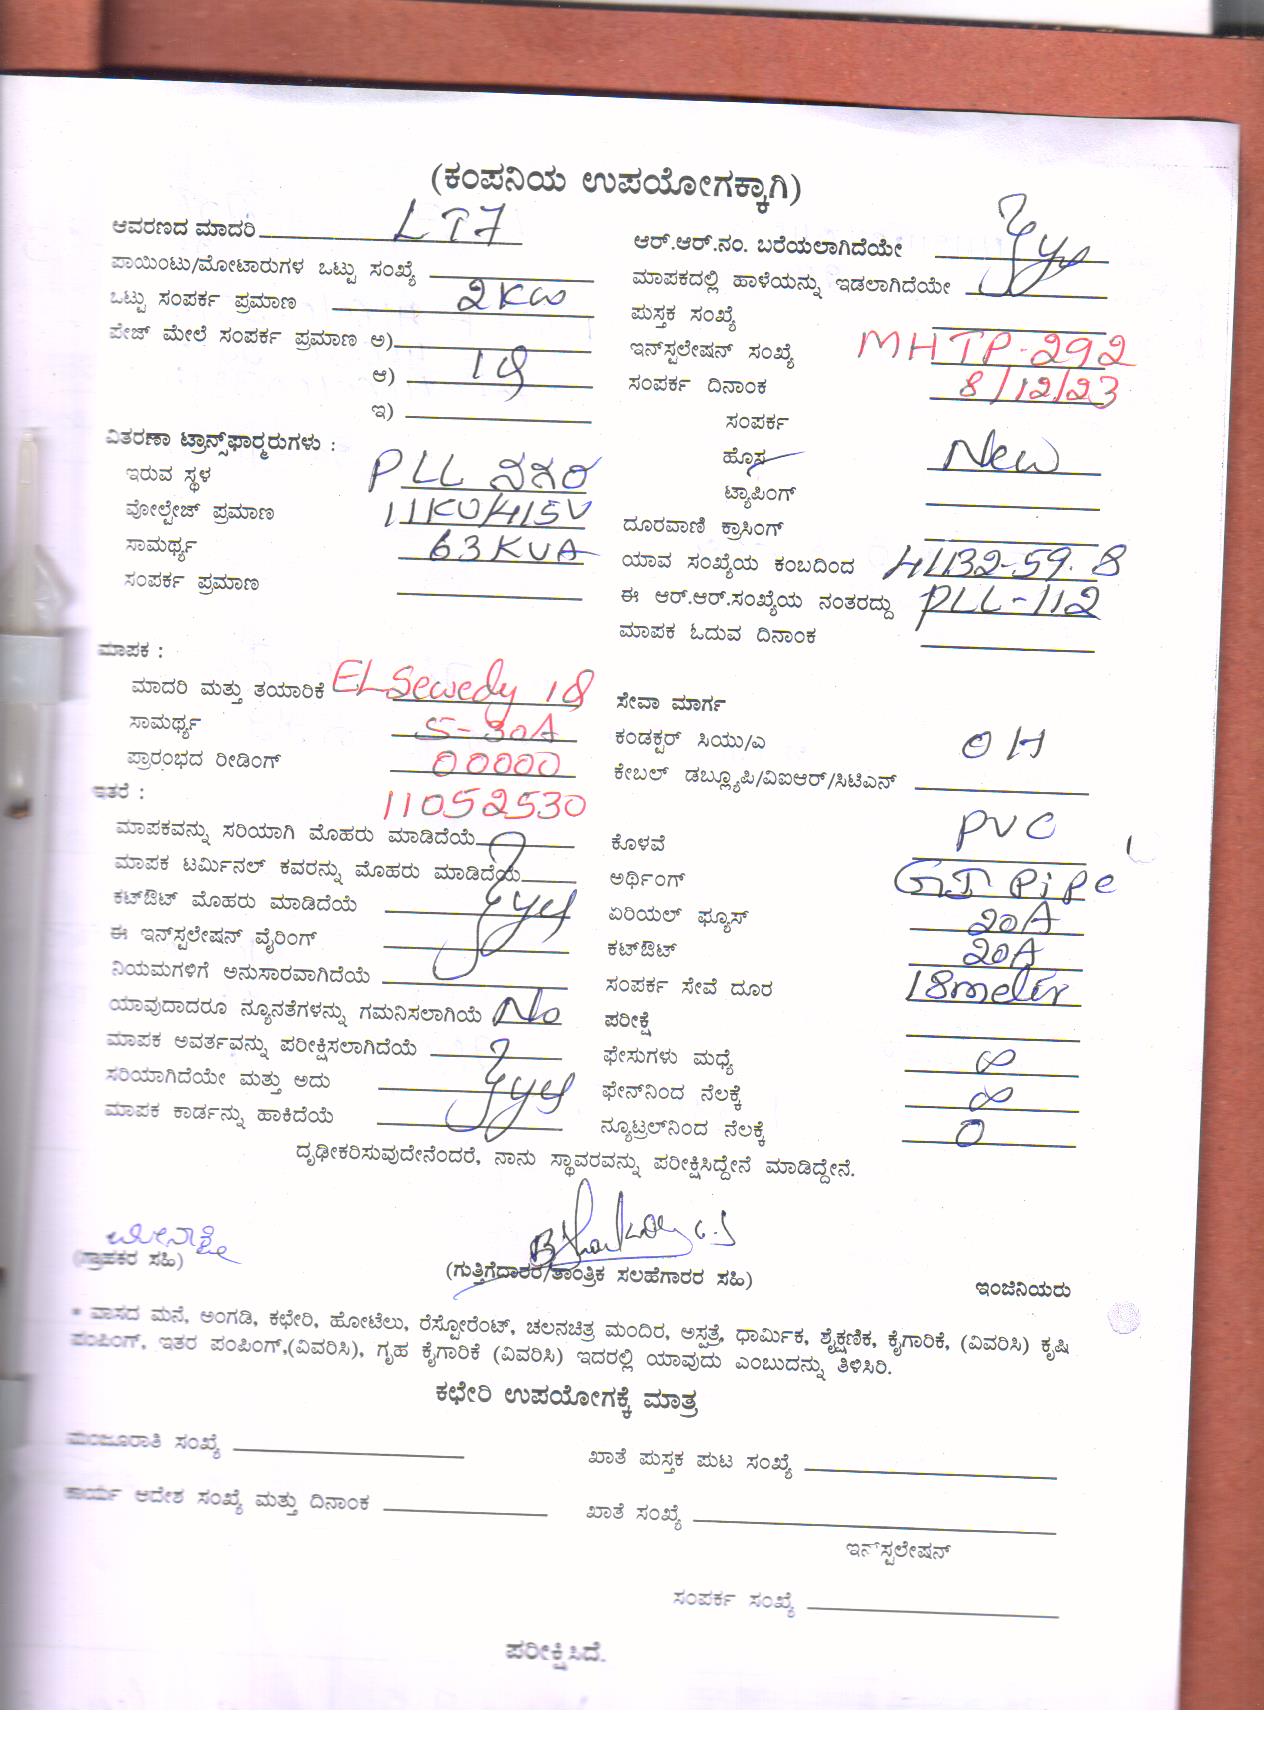 (ಕಂಪನಿಯ ಉಪಯೋಗಕ್ಕಾಗಿ)
ಆವರಣದ ಮಾದರಿ LT7
ಪಾಯಿಂಟು/ಮೋಟಾರುಗಳ ಒಟ್ಟು ಸಂಖ್ಯೆ
ಒಟ್ಟು ಸಂಪರ್ಕ ಪ್ರಮಾಣ 2KW
ಪೇಜ್ ಮೇಲೆ ಸಂಪರ್ಕ ಪ್ರಮಾಣ ಅ)
ಆ) 1φ
ಇ)
ವಿತರಣಾ ಟ್ರಾನ್ಸ್‌ಫಾರ್ಮರುಗಳು :
ಇರುವ ಸ್ಥಳ PLL ನಗರ
ವೋಲ್ಟೇಜ್ ಪ್ರಮಾಣ 11KV/415V
ಸಾಮರ್ಥ್ಯ 63KVA
ಸಂಪರ್ಕ ಪ್ರಮಾಣ
ಮಾಪಕ :
ಮಾದರಿ ಮತ್ತು ತಯಾರಿಕೆ ELSewedy 1φ
ಸಾಮರ್ಥ್ಯ 5-30A
ಪ್ರಾರಂಭದ ರೀಡಿಂಗ್ 00000
ಇತರೆ : 11052530
ಮಾಪಕವನ್ನು ಸರಿಯಾಗಿ ಮೊಹರು ಮಾಡಿದೆಯೆ
ಮಾಪಕ ಟರ್ಮಿನಲ್ ಕವರನ್ನು ಮೊಹರು ಮಾಡಿದೆಯೆ
ಕಟ್‌ಔಟ್ ಮೊಹರು ಮಾಡಿದೆಯೆ yes
ಈ ಇನ್‌ಸ್ಟಲೇಷನ್ ವೈರಿಂಗ್
ನಿಯಮಗಳಿಗೆ ಅನುಸಾರವಾಗಿದೆಯೆ
ಯಾವುದಾದರೂ ನ್ಯೂನತೆಗಳನ್ನು ಗಮನಿಸಲಾಗಿಯೆ No
ಮಾಪಕ ಅವರ್ತವನ್ನು ಪರೀಕ್ಷಿಸಲಾಗಿದೆಯೆ
ಸರಿಯಾಗಿದೆಯೇ ಮತ್ತು ಅದು yes
ಮಾಪಕ ಕಾರ್ಡನ್ನು ಹಾಕಿದೆಯೆ
ಆರ್.ಆರ್.ನಂ. ಬರೆಯಲಾಗಿದೆಯೇ yes
ಮಾಪಕದಲ್ಲಿ ಹಾಳೆಯನ್ನು ಇಡಲಾಗಿದೆಯೇ
ಪುಸ್ತಕ ಸಂಖ್ಯೆ
ಇನ್‌ಸ್ಟಲೇಷನ್ ಸಂಖ್ಯೆ MHTP-292
ಸಂಪರ್ಕ ದಿನಾಂಕ 8/12/23
ಸಂಪರ್ಕ
ಹೊಸ New
ಟ್ಯಾಪಿಂಗ್
ದೂರವಾಣಿ ಕ್ರಾಸಿಂಗ್
ಯಾವ ಸಂಖ್ಯೆಯ ಕಂಬದಿಂದ
ಈ ಆರ್.ಆರ್.ಸಂಖ್ಯೆಯ ನಂತರದ್ದು PLL-112
ಮಾಪಕ ಓದುವ ದಿನಾಂಕ
ಸೇವಾ ಮಾರ್ಗ
ಕಂಡಕ್ಟರ್ ಸಿಯು/ಎ OH
ಕೇಬಲ್ ಡಬ್ಲ್ಯೂಪಿ/ವಿಐಆರ್/ಸಿಟಿಎನ್
ಕೊಳವೆ PVC
ಅರ್ಥಿಂಗ್ GI Pipe
ಏರಿಯಲ್ ಫ್ಯೂಸ್ 20A
ಕಟ್‌ಔಟ್ 20A
ಸಂಪರ್ಕ ಸೇವೆ ದೂರ 18meter
ಪರೀಕ್ಷೆ
ಫೇಸುಗಳು ಮಧ್ಯೆ ∞
ಫೇನ್‌ನಿಂದ ನೆಲಕ್ಕೆ ∞
ನ್ಯೂಟ್ರಲ್‌ನಿಂದ ನೆಲಕ್ಕೆ 0
ದೃಢೀಕರಿಸುವುದೇನೆಂದರೆ, ನಾನು ಸ್ಥಾವರವನ್ನು ಪರೀಕ್ಷಿಸಿದ್ದೇನೆ ಮಾಡಿದ್ದೇನೆ.
ಮೀನಾಕ್ಷಿ
(ಗ್ರಾಹಕರ ಸಹಿ)
(ಗುತ್ತಿಗೆದಾರರ/ತಾಂತ್ರಿಕ ಸಲಹೆಗಾರರ ಸಹಿ)
ಇಂಜಿನಿಯರು
* ವಾಸದ ಮನೆ, ಅಂಗಡಿ, ಕಛೇರಿ, ಹೋಟೆಲು, ರೆಸ್ಟೋರೆಂಟ್, ಚಲನಚಿತ್ರ ಮಂದಿರ, ಅಸ್ಪತ್ರೆ, ಧಾರ್ಮಿಕ, ಶೈಕ್ಷಣಿಕ, ಕೈಗಾರಿಕೆ, (ವಿವರಿಸಿ) ಕೃಷಿ
ಪಂಪಿಂಗ್, ಇತರ ಪಂಪಿಂಗ್,(ವಿವರಿಸಿ), ಗೃಹ ಕೈಗಾರಿಕೆ (ವಿವರಿಸಿ) ಇದರಲ್ಲಿ ಯಾವುದು ಎಂಬುದನ್ನು ತಿಳಿಸಿರಿ.
ಕಛೇರಿ ಉಪಯೋಗಕ್ಕೆ ಮಾತ್ರ
ಮಂಜೂರಾತಿ ಸಂಖ್ಯೆ
ಖಾತೆ ಪುಸ್ತಕ ಪುಟ ಸಂಖ್ಯೆ
ಕಾರ್ಯ ಆದೇಶ ಸಂಖ್ಯೆ ಮತ್ತು ದಿನಾಂಕ
ಖಾತೆ ಸಂಖ್ಯೆ
ಇನ್‌ಸ್ಟಲೇಷನ್
ಸಂಪರ್ಕ ಸಂಖ್ಯೆ
ಪರೀಕ್ಷಿಸಿದೆ.